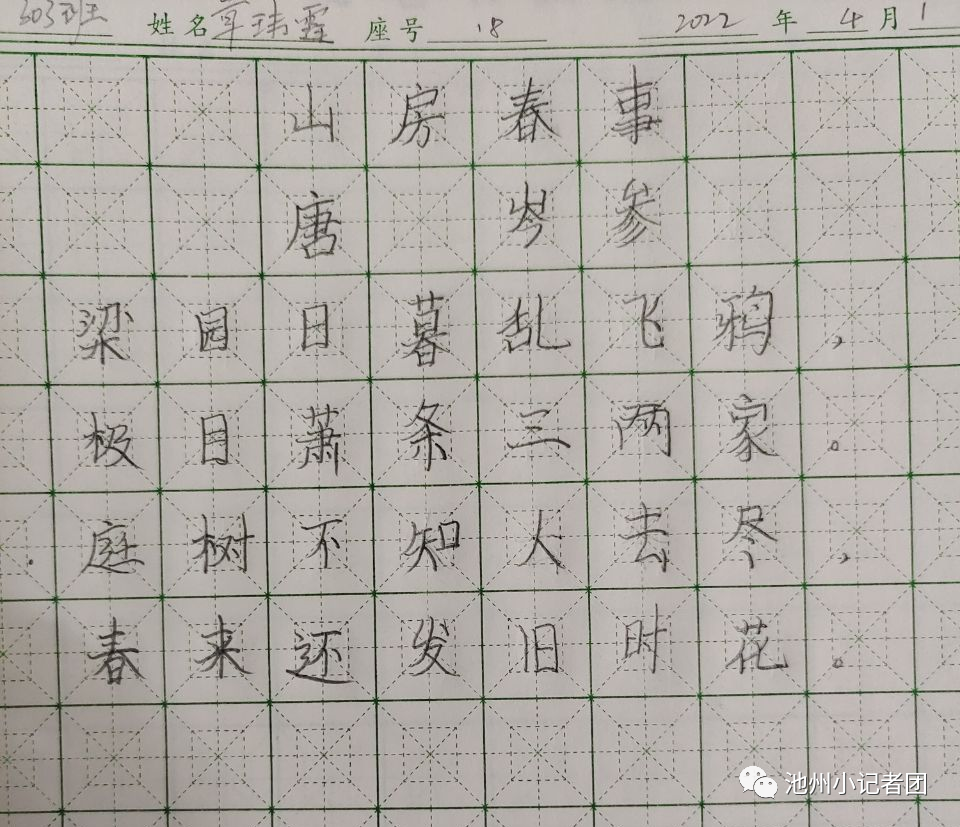 603班 姓名 章玮霏 座号 18 2022 年 4 月 1
山房春事
唐 岑参
梁园日暮乱飞鸦，
极目萧条三两家。
庭树不知人去尽，
春来还发旧时花。
池州小记者团